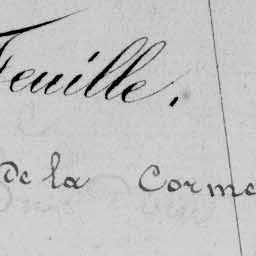 Feuille.
de la Corme